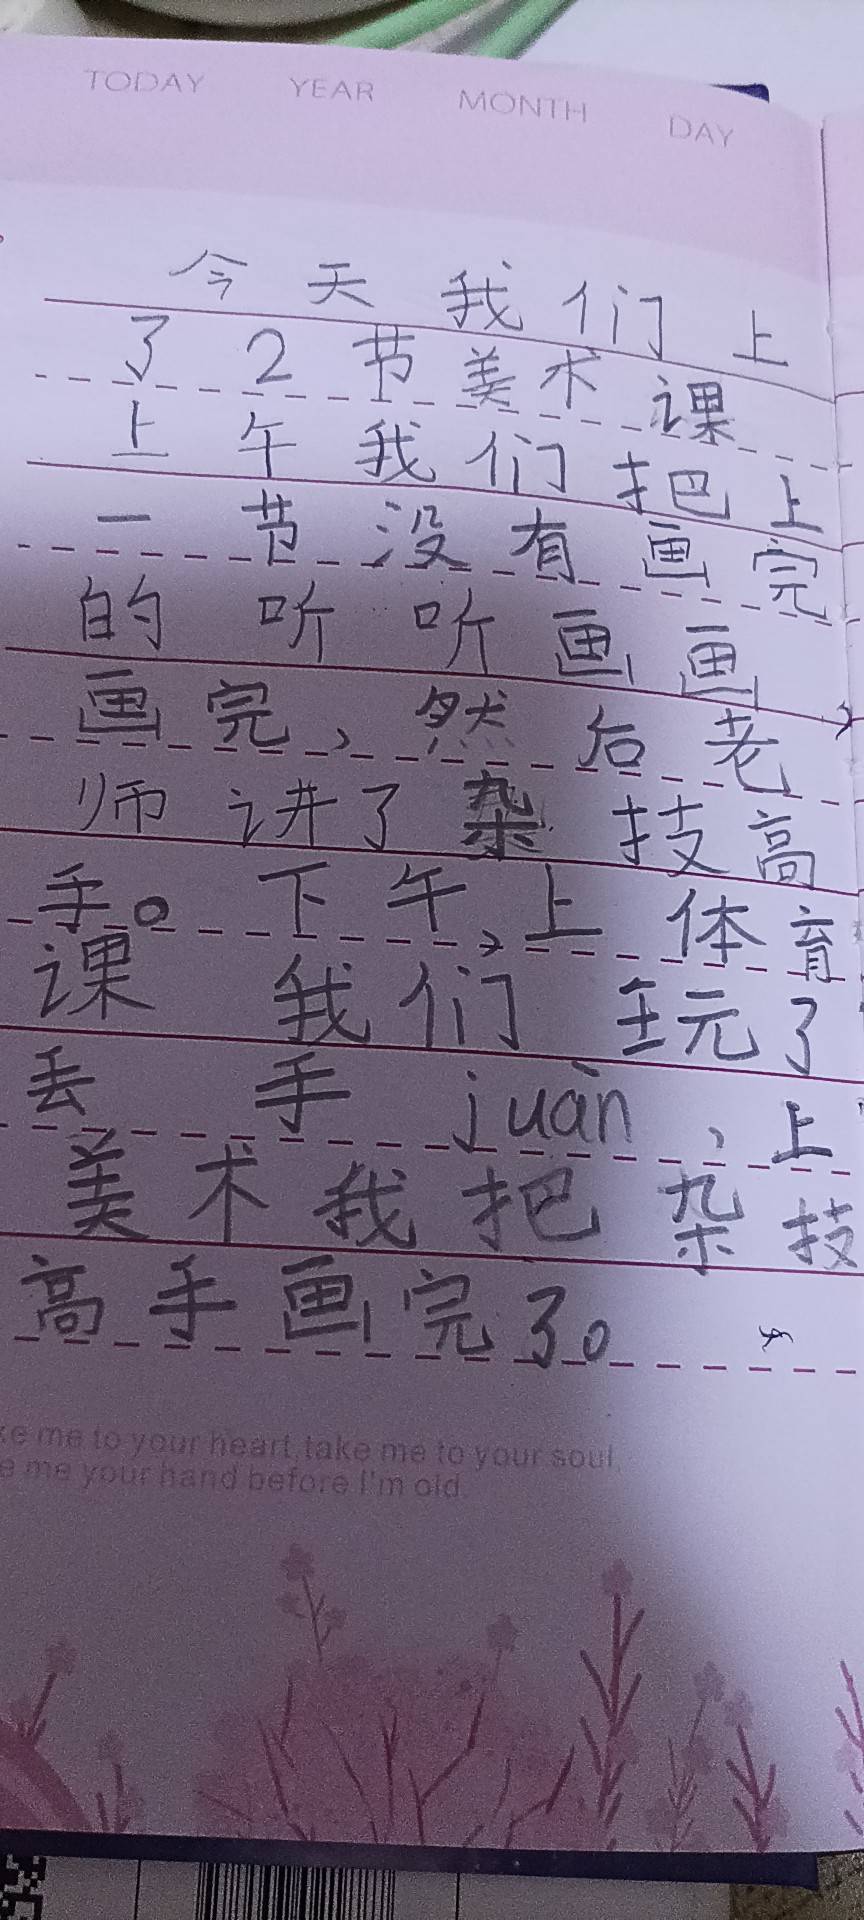 TODAY YEAR MONTH DAY
今天我们上
了2节美术课
上午我们把上
一节没有画完
的听听画画
画完、然后老
师讲了杂技高
手。下午,上体育
课 我们玩了
丢手juàn、上
美术我把杂技
高手画完了。
ke me to your heart, take me to your soul,
e me your hand before I'm old.